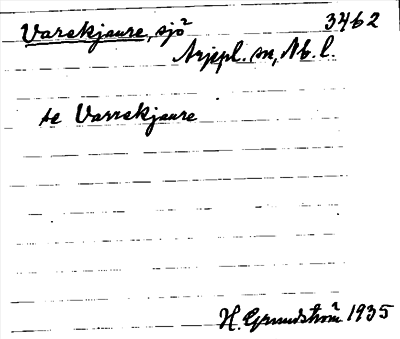 Varskjaure, sjö 3462
Arjepl. sn, Nb. l.
se Varrskjaure
H. Grundström 1935